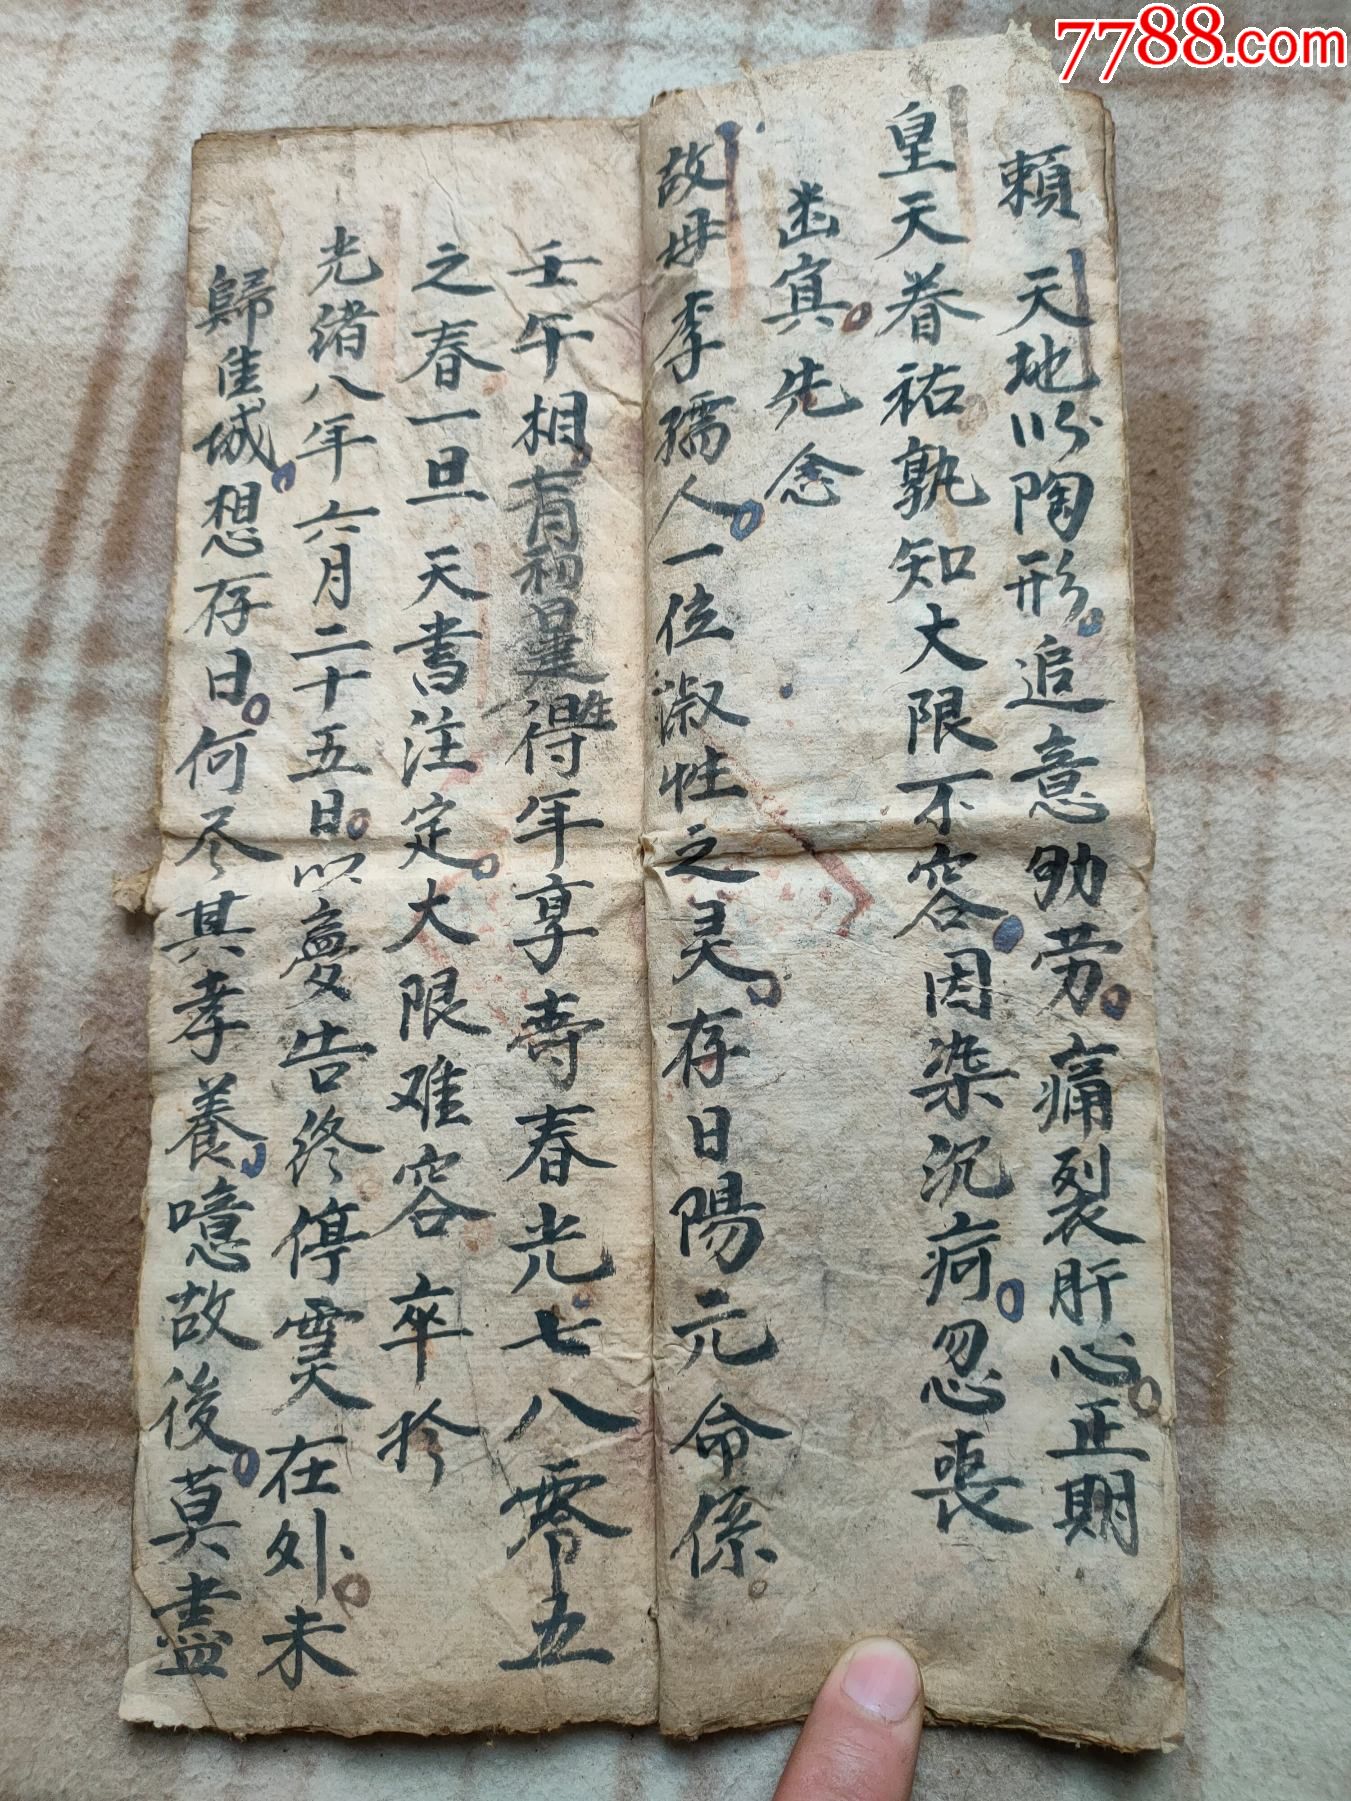 7788.com
賴 天地以陶形追意劬劳痛裂肝心正期
皇天眷祐孰知大限不容因染沉疴忽喪
幽冥先念
故母李孺人一位淑性之灵存日陽元命係
壬午相 得年享壽春光七八零五
生
之春一旦天書注定大限难容卒於
光绪八年六月二十五日以 告终停 在外未
歸佳城想存日何尽其孝養噫故後莫盡